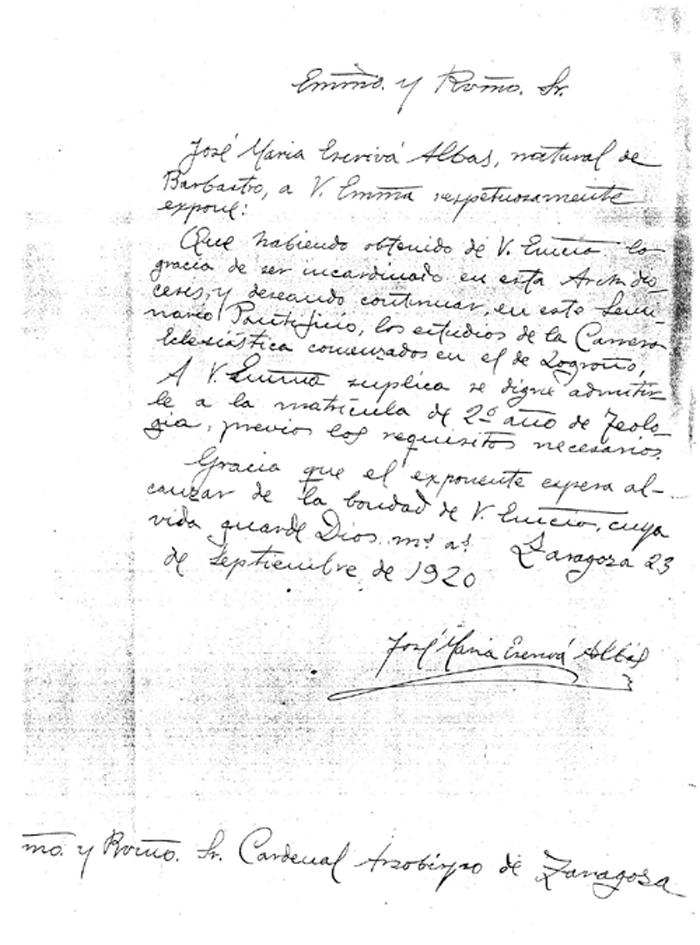 Emmo. y Rvmo. Sr.
José Maria Escrivá Albas, natural de
Barbastro, a V. Emma respetuosamente
expone:
Que habiendo obtenido de V. Emcia la
gracia de ser incardinado en esta Archidió-
cesis, y deseando continuar, en este Semi-
nario Pontificio, los estudios de la Carrera
Eclesiástica comenzados en el de Logroño,
A V. Emma suplica se digne admitir-
le a la matrícula de 2º año de Teolo-
gía, previos los requisitos necesarios.
Gracia que el exponente espera al-
canzar de la bondad de V. Emcia, cuya
vida guarde Dios m.s a.s Zaragoza 23
de Septiembre de 1920
José Maria Escrivá Albás
mo. y Rvmo. Sr. Cardenal Arzobispo de Zaragoza